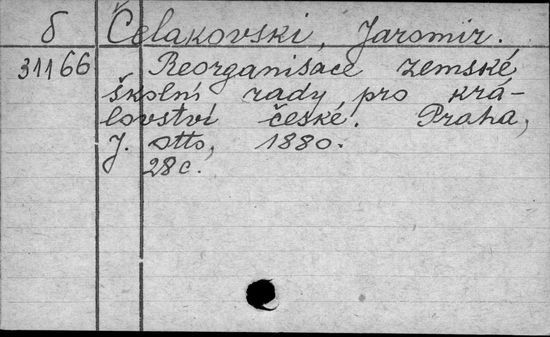 б Čelakovski, Jaromir.
31166 Reorganisace zemské
školní rady pro krá-
lovství české. Praha,
J. Otto, 1880.
28 c.